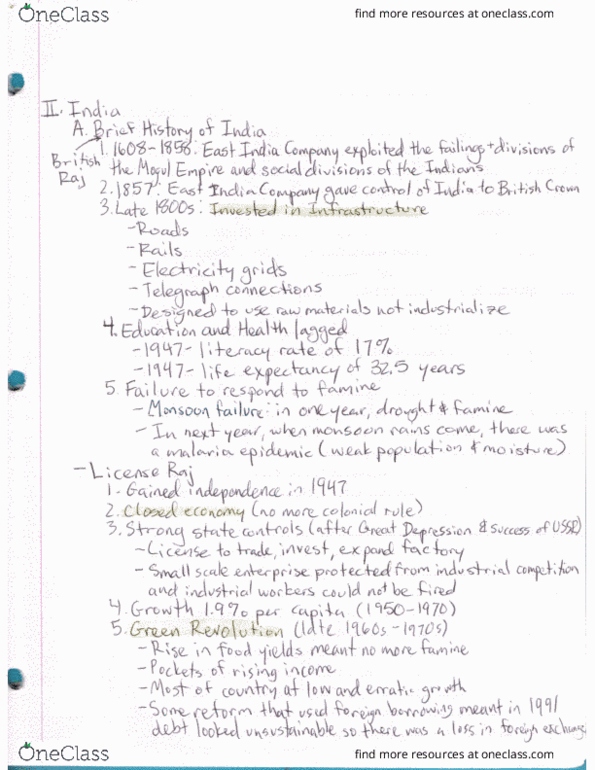 OneClass
find more resources at oneclass.com
II. India
A. Brief History of India
1. 1608-1858: East India Company exploited the failings + divisions of
British Raj
the Mogul Empire and social divisions of the Indians
2. 1857: East India Company gave control of India to British Crown
3. Late 1800s: Invested in Infrastructure
- Roads
- Rails
- Electricity grids
- Telegraph connections
- Designed to use raw materials not industrialize
4. Education and Health lagged
- 1947- literacy rate of 17%
- 1947- life expectancy of 32.5 years
5. Failure to respond to famine
- Monsoon failure: in one year, drought & famine
- In next year, when monsoon rains come, there was
a malaria epidemic (weak population & moisture)
- License Raj
1. Gained independence in 1947
2. Closed economy (no more colonial rule)
3. Strong state controls (after Great Depression & Success of USSR)
- License to trade, invest, expand factory
- Small scale enterprise protected from industrial competition
and industrial workers could not be fired
4. Growth 1.9% per capita (1950-1970)
5. Green Revolution (late 1960s-1970s)
- Rise in food yields meant no more famine
- Pockets of rising income
- Most of country at low and erratic growth
- Some reform that used foreign borrowing meant in 1991
debt looked unsustainable so there was a loss in foreign exchange
OneClass
find more resources at oneclass.com